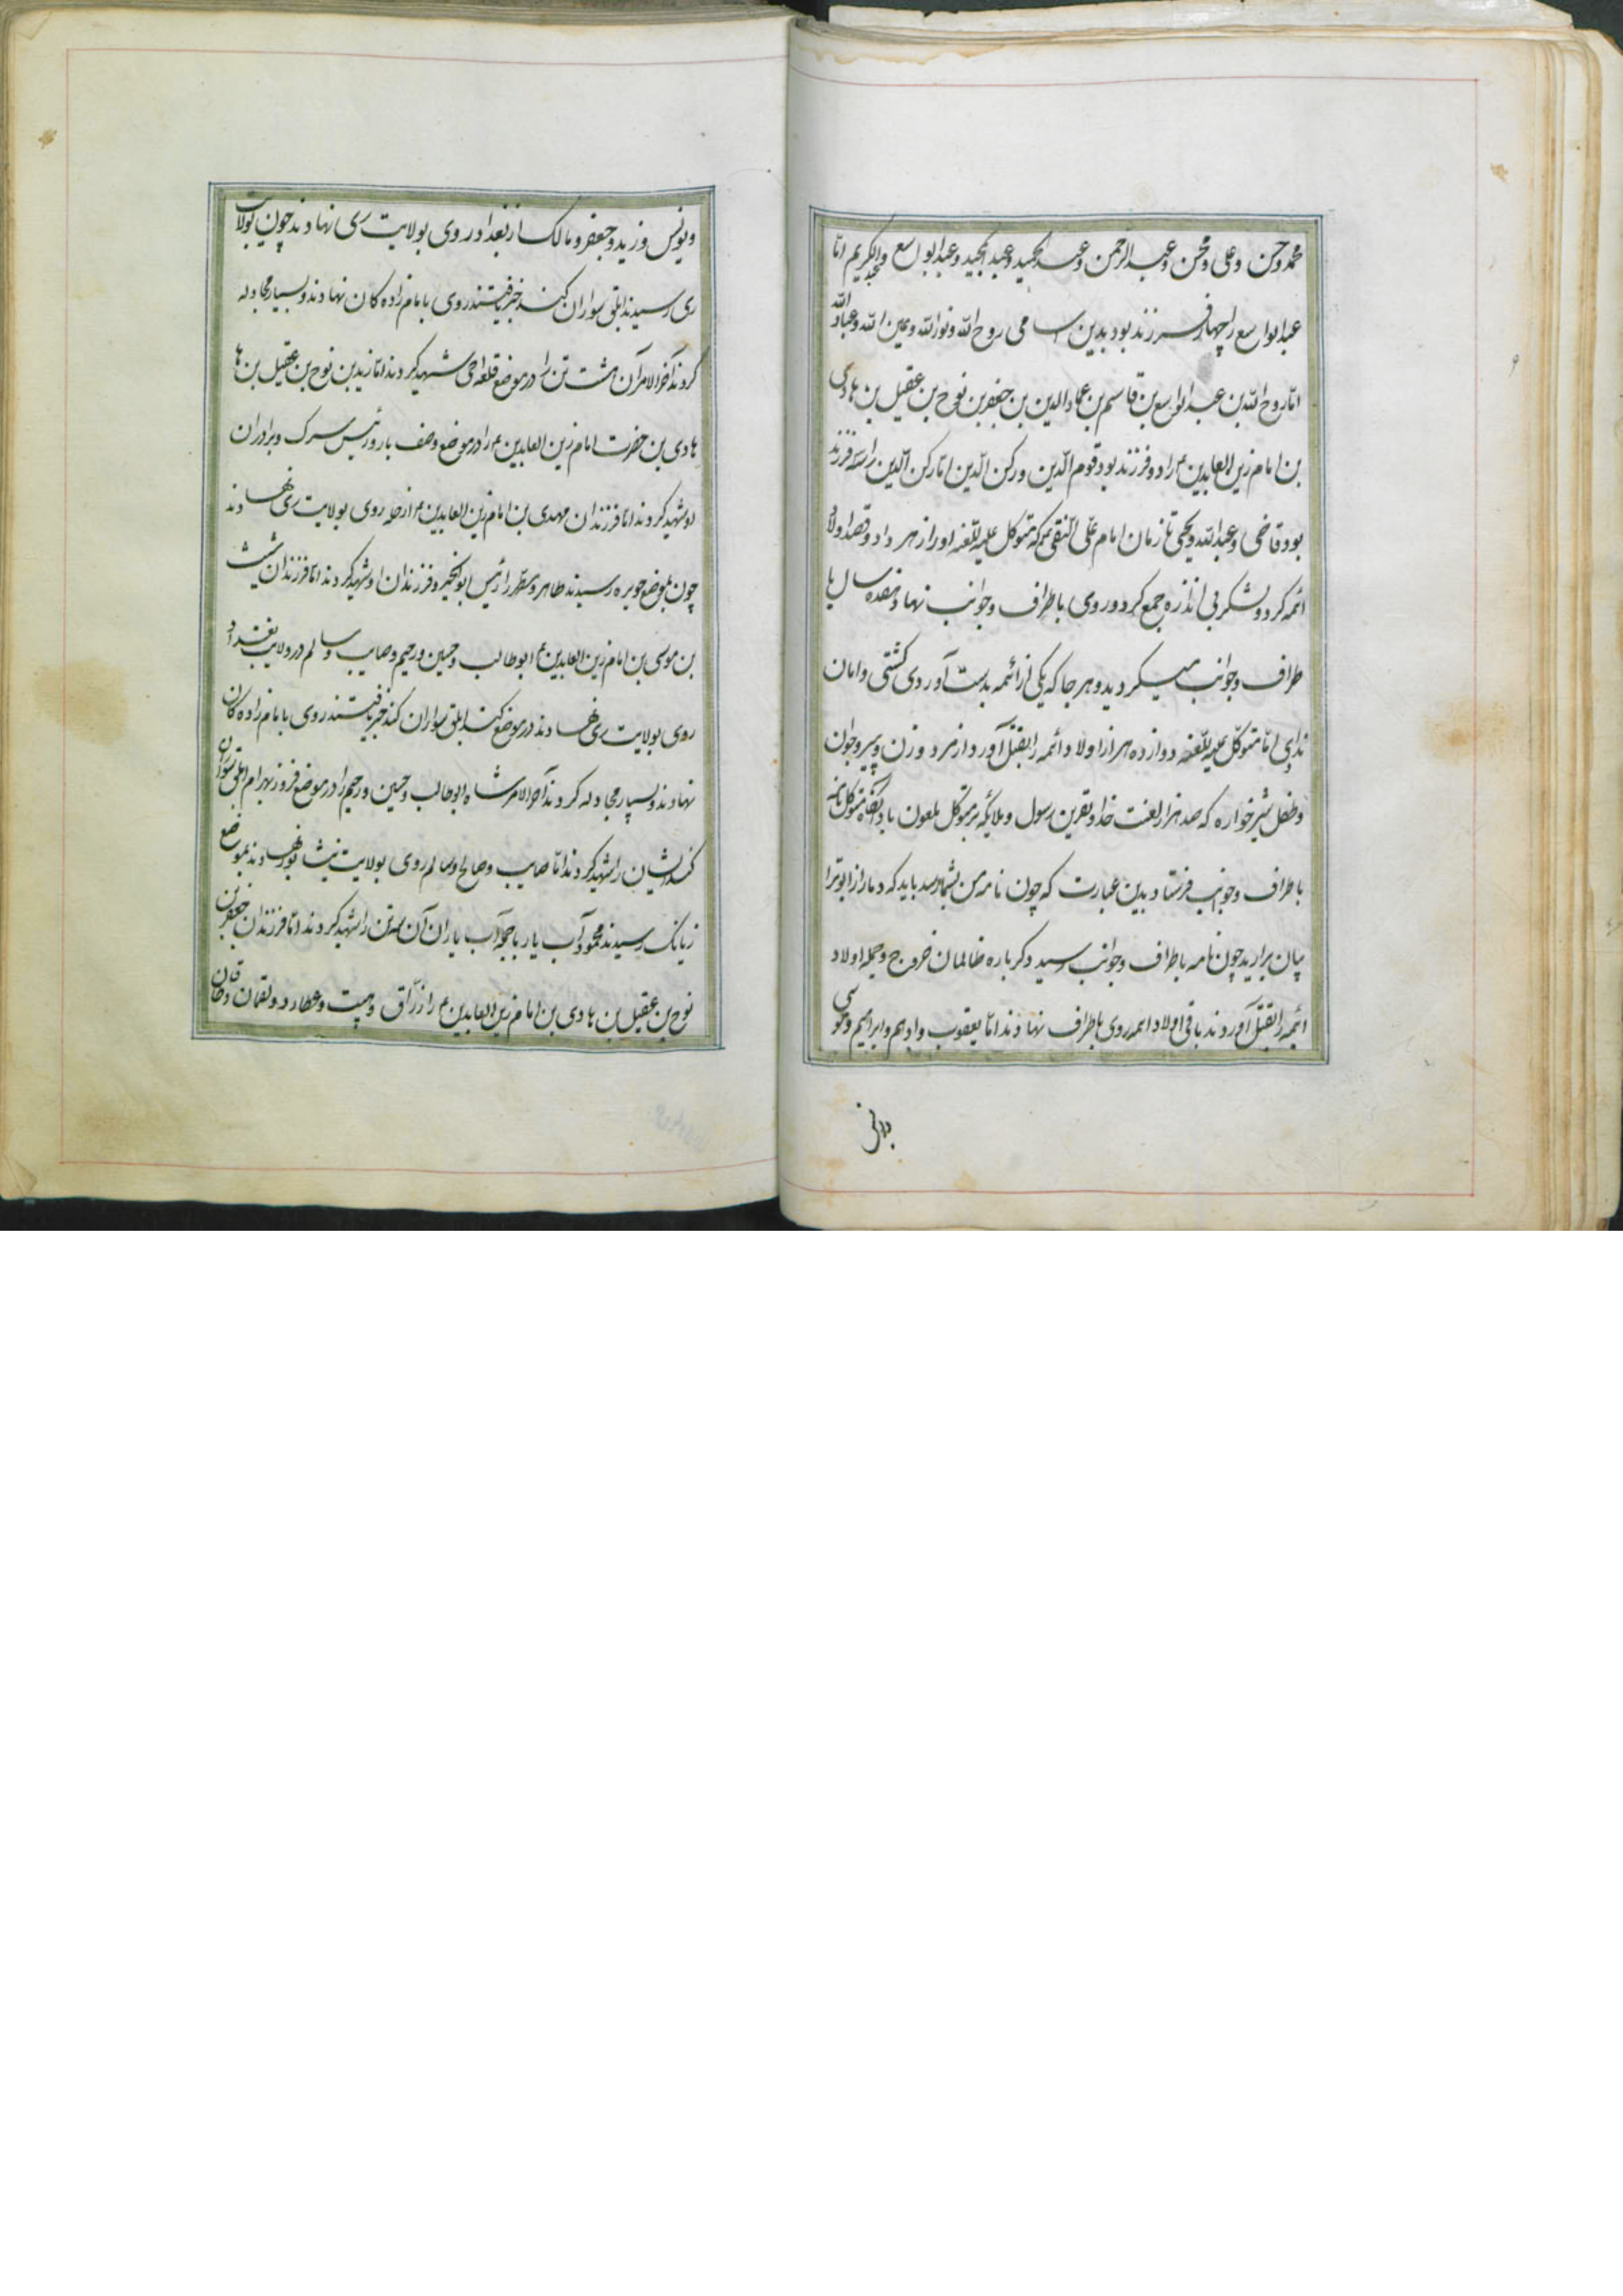 محمد وحسن وعلی ومحسن وعبدالرحمن وعبدالحمید وعبدالمجید وعبدالواسع وعبدالکریم امّا
عبدالواسع را چهار فرزند بود بدین اسامی روح الله ونورالله وعین الله وعبادالله
امّا روح الله بن عبدالواسع بن قاسم بن عمادالدین بن جعفر بن نوح بن عقیل بن هادی
بن امام زین العابدین ع را دو فرزند بود قوم الدّین ورکن الدّین امّا رکن الدّین را سه فرزند
بود قاضی وعبدالله ویحیی تا زمان امام علی النقی ع که متوکل علیه اللّعنه او را زهر داد وقصد اولاد
ائمه کرد ولشکر بی اندازه جمع کرد وروی باطراف وجوانب نهاد وهفده سال با
طراف وجوانب میگردید وهر جا که یکی از ائمه بدست آوردی کشتی وامان
ندادی امّا متوکّل علیه اللّعنه دوازده هزار از اولاد ائمه را بقتل آورد از مرد وزن وپیر وجوان
وطفل شیرخواره که صد هزار لعنت خدا ونفرین رسول وملائکه بر متوکل ملعون باد آنگاه متوکل نامه
باطراف وجوانب فرستاد بدین عبارت که چون نامه من بشما رسد باید که دمار از ابوترا
بیان برارید چون نامه باطراف وجوانب رسید دکرباره ظالمان خروج وجمله اولاد
ائمه را بقتل آوردند باقی اولاد ائمه روی باطراف نهادند امّا یعقوب وادهم وابراهیم وموسی
ویونس وزید وجعفر ومالک از بغداد روی بولایت ری نهادند چون بولایت
ری رسیدند ابلق سواران کند خبر یافتند روی بامام زاده کان نهادند وبسیار مجادله
کردند آخرالامر آن هشت تن را در موضع قلعه شهید کردند امّا زید بن نوح بن عقیل بن ها
هادی بن حضرت امام زین العابدین ع را در موضع وصف بارو رئیس سرک وبرادران
او شهید کردند امّا فرزندان مهدی بن امام زین العابدین ع از حله روی بولایت ری نهادند
چون بموضع جوبره رسیدند طاهر ومطهر را رئیس ابوالخیر وفرزندان او شهید کردند امّا فرزندان شیث
بن موسی بن امام زین العابدین ع ابوطالب وحسین ورحیم وصایب وسالم در ولایت بغداد
روی بولایت ری نهادند در موضع کند ابلق سواران کند خبر یافتند روی بامام زاده کان
نهادند وبسیار مجادله کردند آخرالامر شاه ابوطالب وحسین ورحیم را در موضع فروز بهرام ابلق سواران
کند ایشان را شهید کردند امّا صایب وصالح وسالم روی بولایت نیشابور نهادند بموضع
زیانک رسیدند محمود آب یار با جمله آب یاران آن سه تن را شهید کردند امّا فرزندان جعفر بن
نوح بن عقیل بن هادی بن امام زین العابدین ع را رزّاق وهیبت وعطارد ولقمان وخاقان